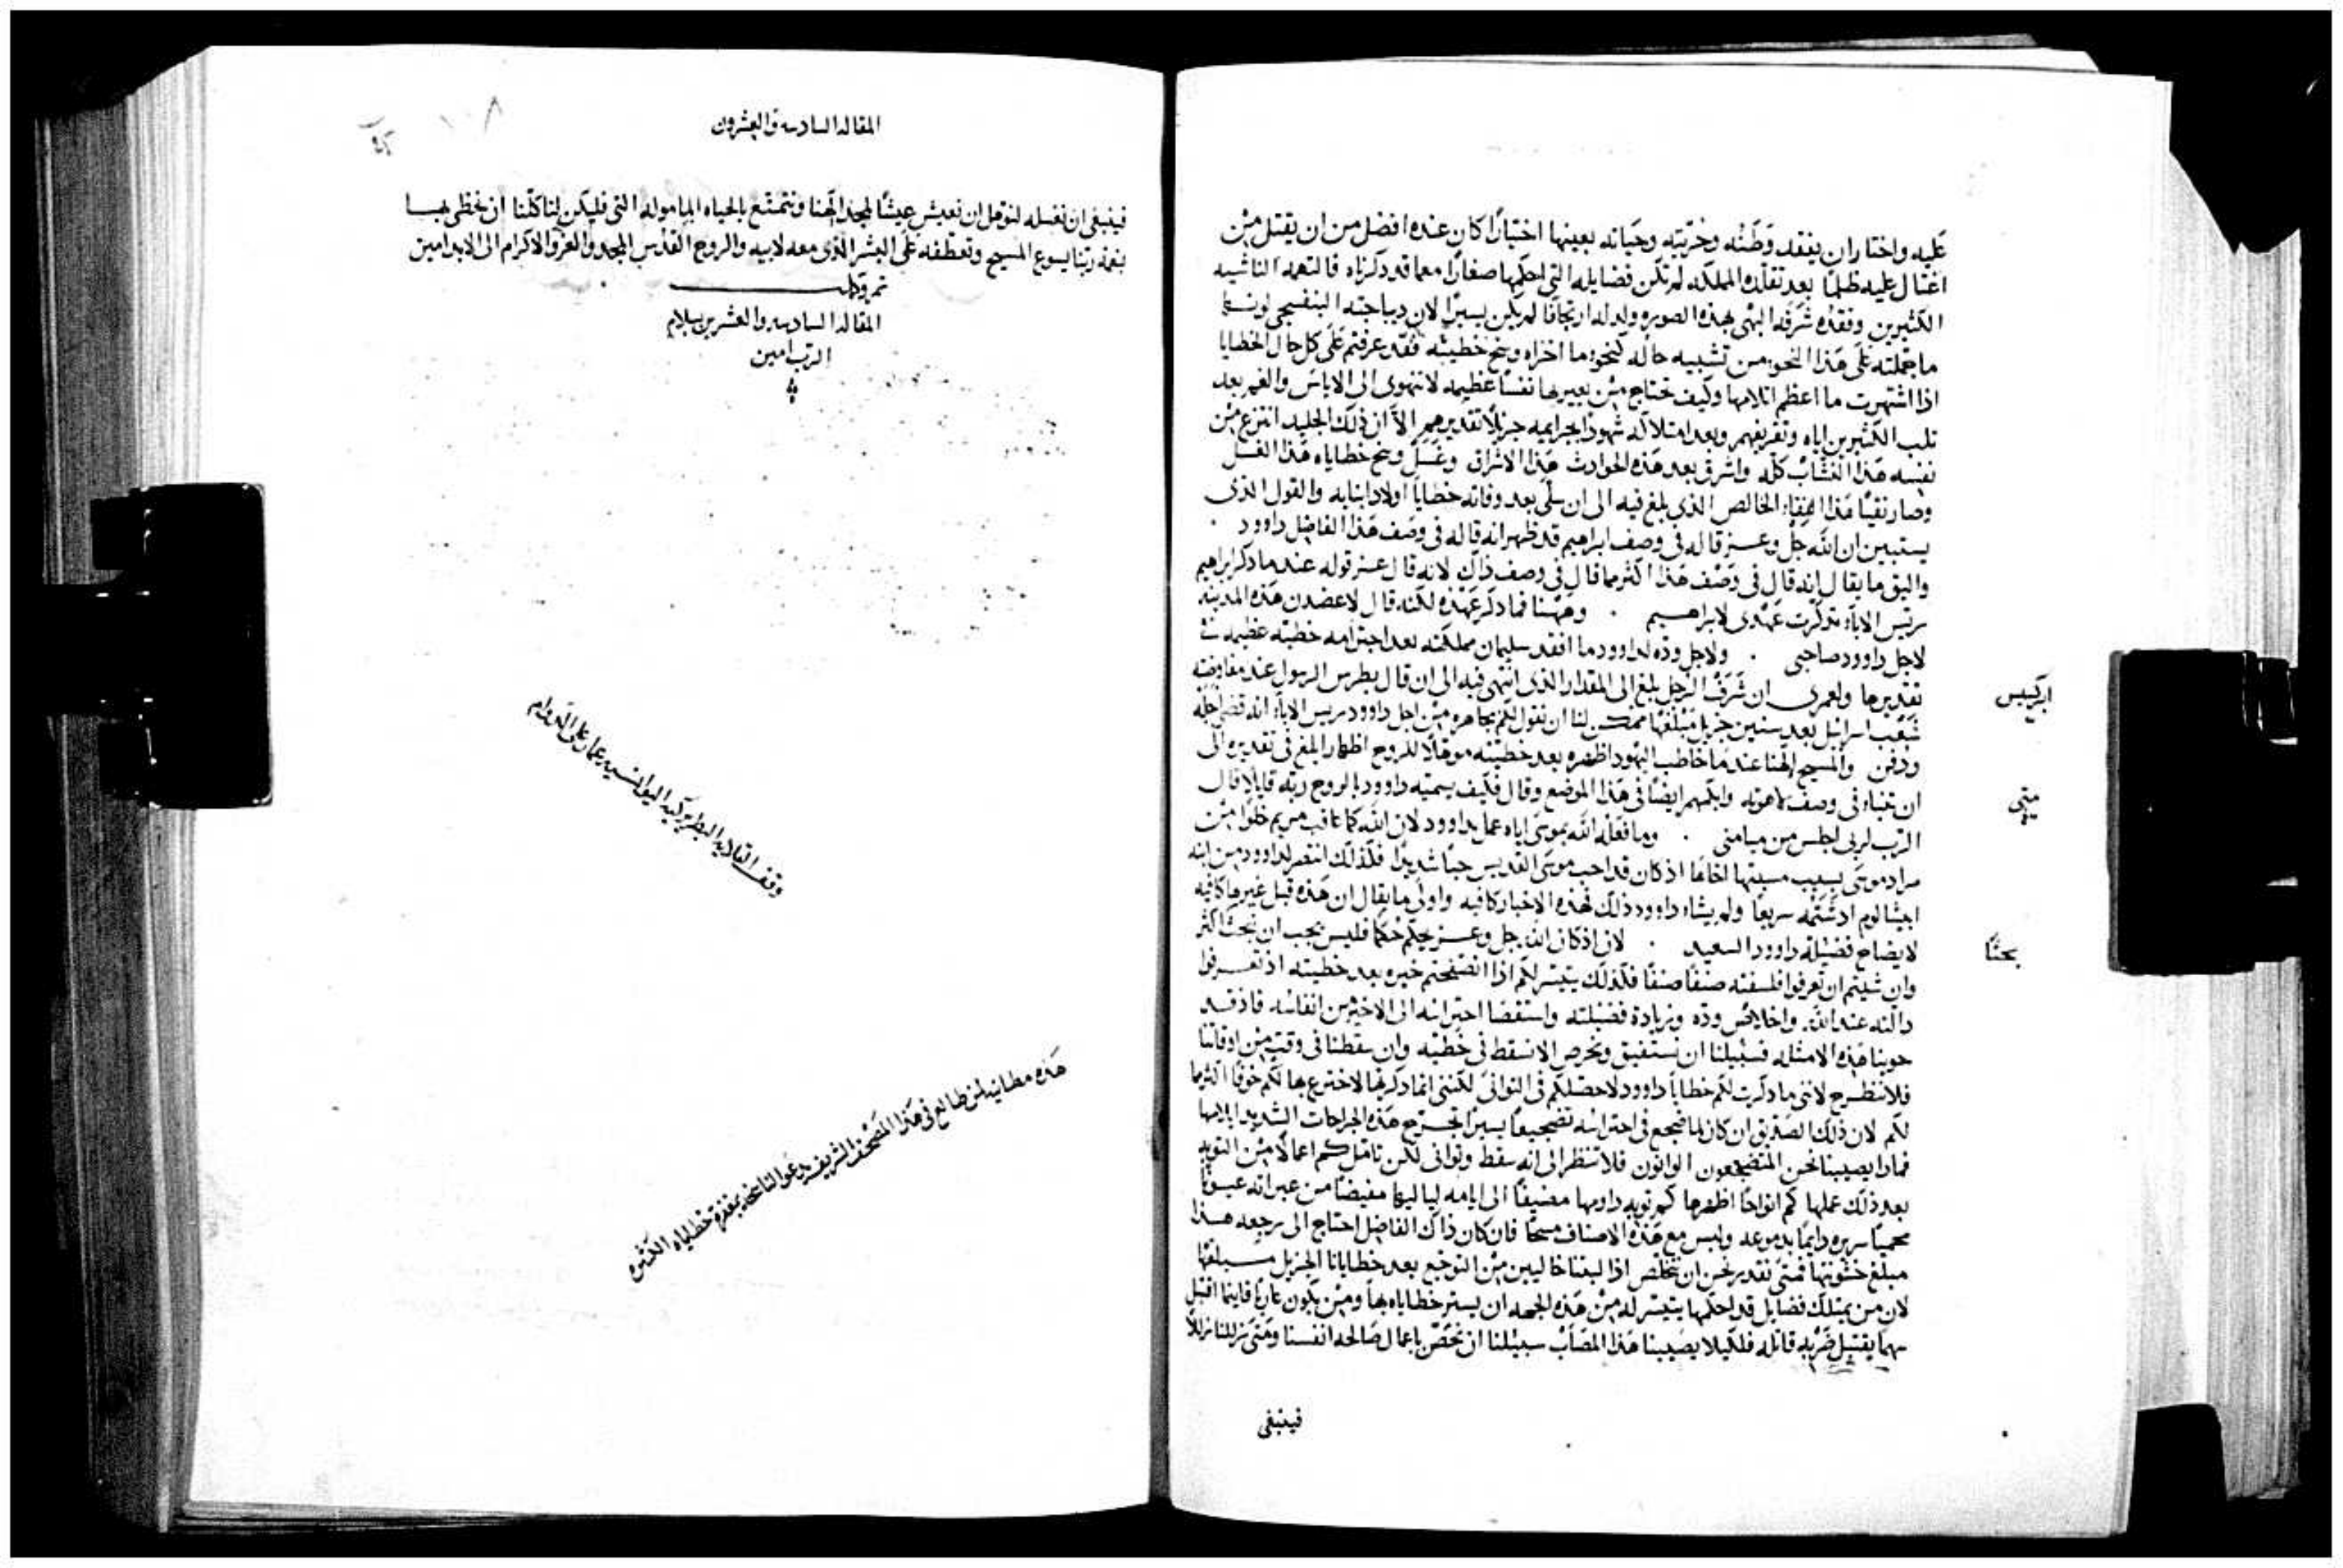 عليه واختار ان يفقد وطنه وحريته وحياته بعينها اختيارًا كان عنده افضل من ان يقتل من
اغتال عليه ظلمًا بعد تقلده المملكه لم تكن فضايله التي احكمها صغارًا معما قد ذكرناه فالتهمه الناشيه
الكثيرين وفقده شرفه البهي بهذه الصوره ولد له ارتجافًا لم يكن يسيرًا لان ديباجته البنفسجي لونها
ما جملته على هذا النحو من تشبيه حاله كنحو ما اخزاه وسخ خطيته فقد عرفتم على كل حال الخطايا
اذا اشتهرت ما اعظم ايلامها وكيف تحتاج من بعيرها نفسًا عظيمه لا تنهوي الى الاياس والغم بعد
ثلب الكثيرين اياه وتقريفهم وبعد امتلاكه شهودًا بجرايمه جزيلاً تقديرهم الا ان ذلك الجليد انتزع من
نفسه هذا النشاب كله واشرق بعد هذه الحوادث هذا الاشراق وغسل وسخ خطاياه هذا الغسل
وصار نقيًا هذا النقاء الخالص الذي بلغ فيه الى ان سلى بعد وفاته خطايا اولاد ابنايه والقول الذي
يستبين ان الله جل وعز قاله في وصف ابراهيم قد ظهر انه قاله في وصف هذا الفاضل داوود .
واليق ما يقال انه قال في وصف هذا اكثر مما قال في وصف ذاك لانه قال عز قوله عند ما ذكر ابراهيم
ريس الاباء تذكرت عهدي لابراهيم . وههنا فما ذكر عهده لكنه قال لاعضدن هذه المدينه
لاجل داوود صاحبي . ولاجل وده لداوود ما افقد سليمان مملكته بعد اجترامه خطيه عظيمه في
تقديرها ولعمري ان شرف الرجل بلغ الى المقدار الذي انتهى فيه الى ان قال بطرس الرسول عند مفاوضته
ابركسيس
شعب اسرائيل بعد سنين جزيل مبلغها ممكن لنا ان نقول لكم بجاهره من اجل داوود ريس الاباء انه قضى اجله
ودفن والمسيح الهنا عند ما خاطب اليهود اظهره بعد خطيته موهلاً للروح اظهارًا بلغ في تقديره الى
ان تنباء في وصف لاهوته وابكمهم ايضًا في هذا الموضع وقال فكيف يسميه داوود بالروح ربه قايلاً قال
متى
الرب لربي اجلس من ميامني . وما فعله الله بموسى اياه عمل بداوود لان الله كما عاقب مريم خلوًا من
مراد موسى بسبب مسبتها اخاها اذ كان قد احب موسى القديس حبًا شديدًا فلذلك انتصر لداوود من ابنه
ابيشالوم اذ شتمه سريعًا ولم يشاء داوود ذلك فهذه الاخبار كافيه واولى ما يقال ان هذه قبل غيرها كافيه
لايضاح فضيلة داوود السعيد . لان اذ كان الله جل وعز يحكم حكمًا فليس يجب ان نبحث اكثر
بحثًا
وان شيتم ان تعرفوا فلسفته صنفًا صنفًا فلذلك يتيسر لكم اذا اتضحتم خبره بعد خطيته اذ تعرفوا
دالته عند الله واخلاص وده وزيادة فضيلته واستقصا احتراسه الى الاخير من انفاسه فاذ قد
حوينا هذه الامثله فسبيلنا ان نستفيق ونحرص الا نسقط في خطيه وان سقطنا في وقت من اوقاتنا
فلا ننطرح لانني ما ذكرت لكم خطايا داوود لاحصلكم في التواني لكنني انما ذكرتها لاخترع بها لكم خوفًا اكثر مما
لكم لان ذلك الصديق ان كان لما ضجع في احتراسه تضجيعًا يسيرًا اجترح هذه الجراحات الشديد ايلامها
فماذا يصيبنا نحن المتضجعون الوانون فلا تنظر الى انه سقط وتوانى لكن تامل كم اعمالا من التوبه
بعد ذلك عملها كم انواحًا اظهرها كم توبه داومها مضيفًا الى ايامه لياليها مفيضًا من عبراته عيونًا
محميًا سريره دايمًا بدموعه ولبس مع هذه الاصناف مسحًا فان كان ذاك الفاضل احتاج الى رجعه هذا
مبلغ خشونتها فمتى نقدر نحن ان نتخلص اذا لبثنا خاليين من التوجع بعد خطايانا الجزيل مبلغها
لان من يمتلك فضايل قد احكمها يتيسر له من هذه الجهه ان يستر خطاياه بها ومن يكون عاريًا فاينما اقتبل
سهمًا يقتبل ضربه قاتله فلكيلا يصيبنا هذا المصاب سبيلنا ان نحصن باعمال صالحه انفسنا ومتى زللنا زللاً
فينبغي
المقاله السادسه والعشرون
فينبغي ان نغسله لنوهل ان نعيش عيشًا لمجد الهنا ونتمتع بالحياه الماموله التي فليكن لنا كلنا ان نحظى بها
بنعمة ربنا يسوع المسيح وتعطفه على البشر الذي معه لابيه والروح القدس المجد والعز والاكرام الى الابد امين
تم وكمل
المقاله السادسه والعشرين بسلام
الرب امين
وقف القلايه البطريركيه اليوانسيه عمار على الدوام
هذه مطانيه لمن طالع في هذا المصحف الشريف يدعو الناسخه بمغفرة خطاياه الكثيره